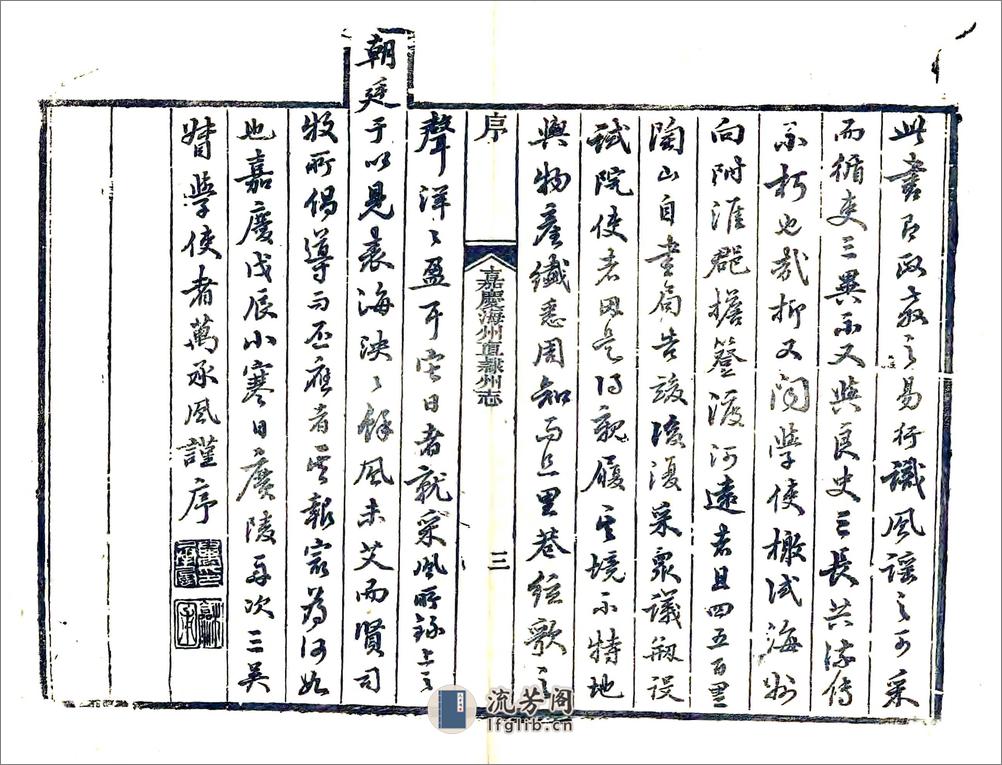 此書即政教之易行識風謠之可采
而循吏三異不又與良史三長共流傳
不朽也哉抑又聞學使檄試海州
向附淮郡擔簦渡河遠者且四五百里
陶山自書局告竣後復采眾議剏設
試院使者因是得親履其境不特地
輿物產纖悉周知而且里巷絃歌之
序 嘉慶海州直隸州志 三
聲洋〻盈耳它日者就采風所録上之
朝廷于以見表海泱〻餘風未艾而賢司
牧所倡導而丕應者其報最為何如
也嘉慶戊辰小寒日廣陵舟次三吳
督學使者萬承風謹序
流芳阁
lfglib.cn